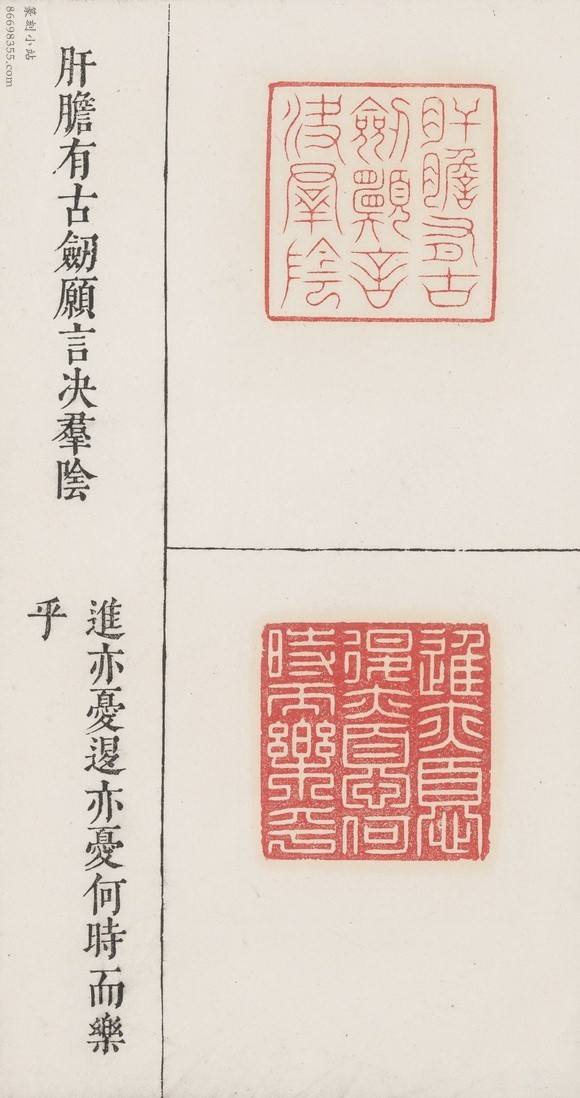 篆刻小站
86698355.com
肝膽有古劒願言决羣陰
肝膽有古
劒願言
决羣陰
進亦憂𨓤亦憂何時而樂
乎
進亦憂
𨓤亦憂何
時而樂乎